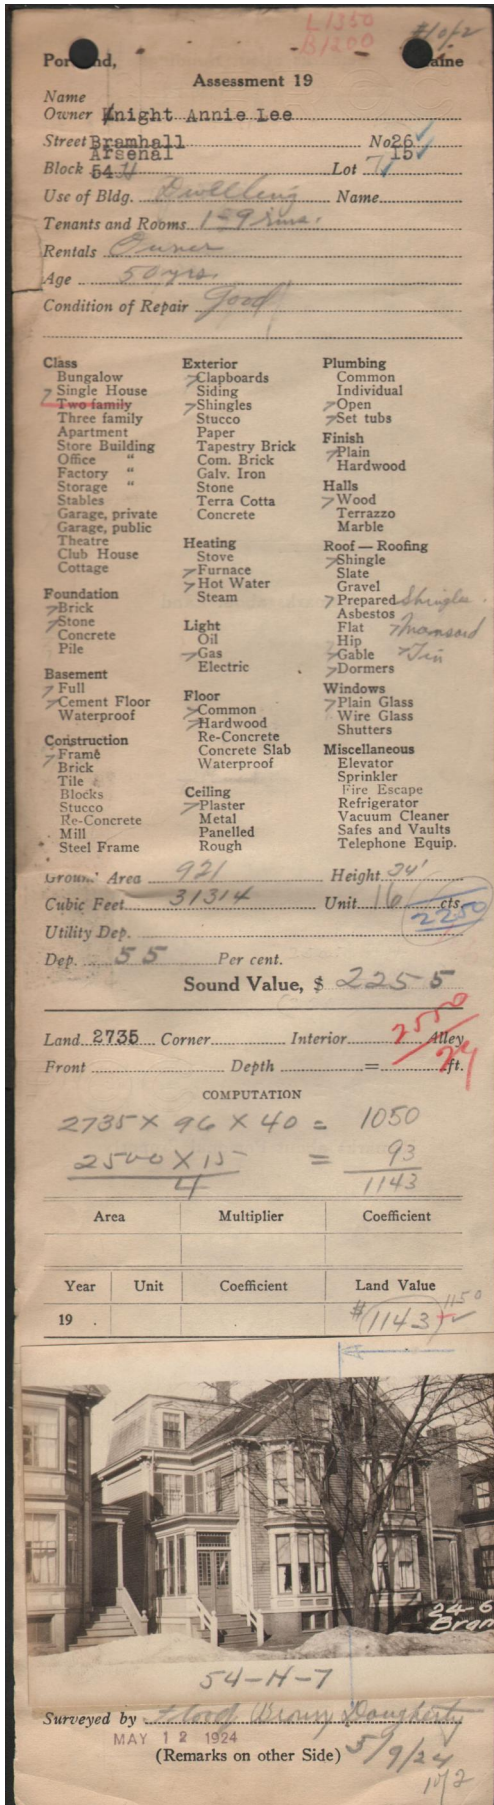 L1350
B1200
#1 of 2
Portland, Maine
Assessment 19
Name
Owner Knight Annie Lee
Street Bramhall No 26
Arsenal 15
Block 54 H Lot 7
Use of Bldg. Dwelling Name
Tenants and Rooms 1-9 rms.
Rentals Owner
Age 50 yrs.
Condition of Repair Good
Class
Bungalow
Single House
Two family
Three family
Apartment
Store Building
Office "
Factory "
Storage "
Stables
Garage, private
Garage, public
Theatre
Club House
Cottage
Foundation
Brick
Stone
Concrete
Pile
Basement
Full
Cement Floor
Waterproof
Construction
Frame
Brick
Tile
Blocks
Stucco
Re-Concrete
Mill
Steel Frame
Exterior
Clapboards
Siding
Shingles
Stucco
Paper
Tapestry Brick
Com. Brick
Galv. Iron
Stone
Terra Cotta
Concrete
Heating
Stove
Furnace
Hot Water
Steam
Light
Oil
Gas
Electric
Floor
Common
Hardwood
Re-Concrete
Concrete Slab
Waterproof
Ceiling
Plaster
Metal
Panelled
Rough
Plumbing
Common
Individual
Open
Set tubs
Finish
Plain
Hardwood
Halls
Wood
Terrazzo
Marble
Roof — Roofing
Shingle
Slate
Gravel
Prepared Shingles
Asbestos
Flat Mansard
Hip
Gable Tin
Dormers
Windows
Plain Glass
Wire Glass
Shutters
Miscellaneous
Elevator
Sprinkler
Fire Escape
Refrigerator
Vacuum Cleaner
Safes and Vaults
Telephone Equip.
Ground Area 921 Height 34'
Cubic Feet 31314 Unit 16 cts.
2250
Utility Dep.
Dep. 55 Per cent.
Sound Value, $ 2255
Land 2735 Corner Interior Alley
2550
24
Front Depth = ft.
COMPUTATION
2735 X 96 X 40 = 1050
2500 X 15 = 93
4 1143
Area Multiplier Coefficient
Year Unit Coefficient Land Value
1150
19 $ 1143
24-6
Bram
54-H-7
Surveyed by Flood Brown Dougherty
MAY 12 1924
(Remarks on other Side) 5/9/24